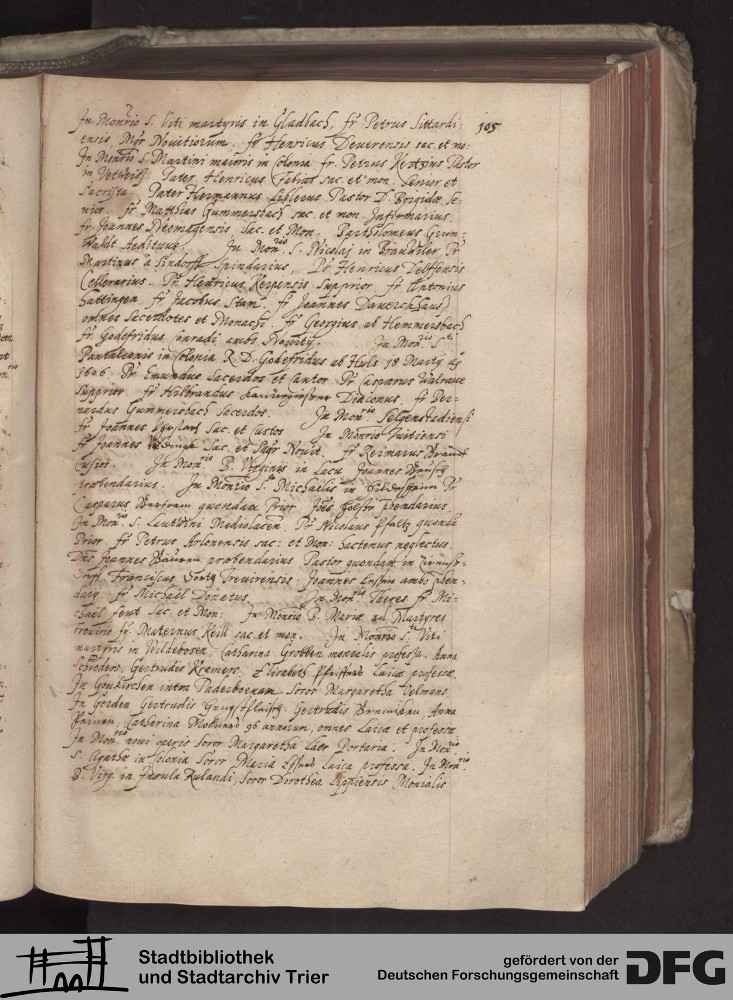 In Monrio S. Viti martyris in Gladbach, fr Petrus Sittardi:
105
ensis Mgr Nouitiorum. fr Henricus Deuerensis sac. et mo:
In Monrio S. Martini maioris in Colonia fr. Petrus Pastor
in Pater Henricus Fabius sac. et mon. Senior et
Sacrista. Pater Hermannus Pastor D. Brigidæ Se-
nior. fr Matthias Gummersbach sac. et mon. Infirmarius.
fr. Joannes Neomagensis Sac. et Mon. Bartholomeus Grun-
waldt Aedituus. In Monrio S. Nicolaj in Brauwiler, Pr
Martinus a Sindorff Spindarius, Pr Henricus Delffensis
Cellerarius. Pr Henricus Kerpensis Supprior. fr Antonius
Hattingen, fr Jacobus Stam. fr Joannes
omnes Sacerdotes et Monachi. fr Georgius ab Hemmersbach
fr Godefridus Conradi ambo Nouitij. In Monrio S.ti
Pantaleonis in Colonia R. D. Godefridus ab Huls 18 Martij
1606. Pr Emundus Sacerdos et Cantor. Pr Casparus Walraue
Supprior. fr Hilbrandus Diaconus. fr Ber-
nardus Gummersbach Sacerdos. In Monrio Selgenstadiensi
fr Joannes Sac. et Custos In Monrio Tuitiensi
fr Joannes Sac. et Mgr Nouit. fr Reimarus Brandt
Custos. In Monrio B. Virginis in Lacu Joannes
præbendarius. In Monrio S. Michaelis in Hildesheim Pr
Casparus Bertram quondam Prior. Joes præbendarius.
In Monrio S. Lautwini Mediolacen. Pr Nicolaus Pfaltz quondã
Prior. fr Petrus Arlonensis sac: et Mon: hactenus neglectus.
Dns Joannes præbendarius Pastor quondam in
Franciscus Treuirensis. Joannes ambo pben-
darij. fr Michael Donatus. In Monrio Theres. fr Mi-
chael sac. et Mon: In Monrio B. Mariæ ad Martyres
Treuiris fr. Maternus Keill sac. et mon. In Monrio S. Viti
martyris in Wildebosen, Catharina Grotten monialis professa. Anna
Schröders, Gertrudis Kramers. Elisabeth Laicæ professæ.
In Goukirchen intra Paderbornam Soror Margaretha Velmans.
In Gerden Gertrudis Gertrudis Anna
Catharina 96 annorum, omnes Laicæ et professæ.
In Monrio noui operis Soror Margaretha Laer Portaria. In Monrio
S. Agathæ in Colonia Soror Maria Laica professa. In Monrio
B. Virg. in Insula Rulandi, Soror Dorothea Lippiensis Monialis
Stadtbibliothek
und Stadtarchiv Trier
gefördert von der
Deutschen Forschungsgemeinschaft
DFG